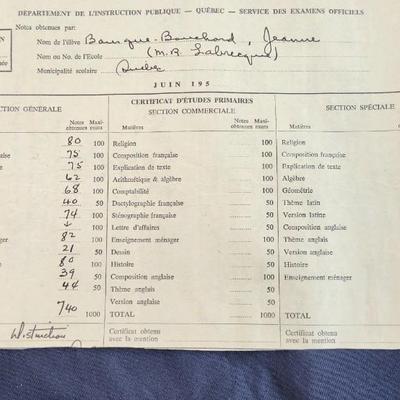 DÉPARTEMENT DE L'INSTRUCTION PUBLIQUE — QUÉBEC — SERVICE DES EXAMENS OFFICIELS
Notes obtenues par:
Nom de l'élève Bourque-Bouchard, Jeanne
Nom ou No. de l'École (M. R. Labrecque)
Municipalité scolaire Québec
JUIN 195
CTION GÉNÉRALE CERTIFICAT D'ÉTUDES PRIMAIRES SECTION COMMERCIALE SECTION SPÉCIALE
Notes obtenues Maxi- mums Matières Notes obtenues Maxi- mums Matières
80 100 Religion 100 Religion
aise 75 100 Composition française 100 Composition française
75 100 Explication de texte 100 Explication de texte
62 100 Arithmétique & algèbre 100 Algèbre
68 100 Comptabilité 100 Géométrie
40 50 Dactylographie française 50 Thème latin
74 100 Sténographie française 50 Version latine
100 Lettre d'affaires 50 Composition anglaise
ager 82 100 Enseignement ménager 100 Thème anglais
21 50 Dessin 50 Version anglaise
80 100 Histoire 100 Histoire
aise 39 50 Composition anglaise 50 Enseignement ménager
44 50 Thème anglais 50
Version anglaise 50
740 1000 TOTAL 1000 TOTAL
Distinction Certificat obtenu avec la mention Certificat obtenu avec la mention